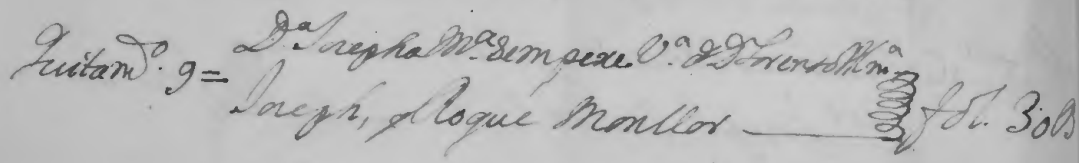 Quitamᵗᵒ. 9 = Dᵃ Josepha Mᵃ Sempere Vᵃ de Dⁿ Lorenso
Joseph, y Roque Monllor fol. 308